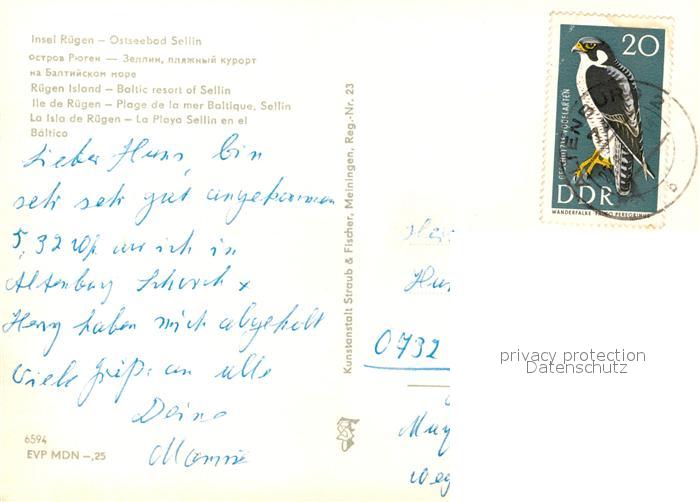 Insel Rügen – Ostseebad Sellin
остров Рюген — Зеллин, пляжный курорт
на Балтийском море
Rügen Island – Baltic resort of Sellin
Ile de Rügen – Plage de la mer Baltique, Sellin
La Isla de Rügen – La Playa Sellin en el
Báltico
Lieber Hans, bin
sehr sehr gut angekommen
5,32 war ich in
Altenburg x
haben mich abgeholt
Viele Grüße an alle
Deine
Mammi
6594
EVP MDN –,25
Kunstanstalt Straub & Fischer, Meiningen, Reg.-Nr. 23
20
GESCHÜTZTE VOGELARTEN
DDR
WANDERFALKE FALCO PEREGRINUS
0732
privacy protection
Datenschutz